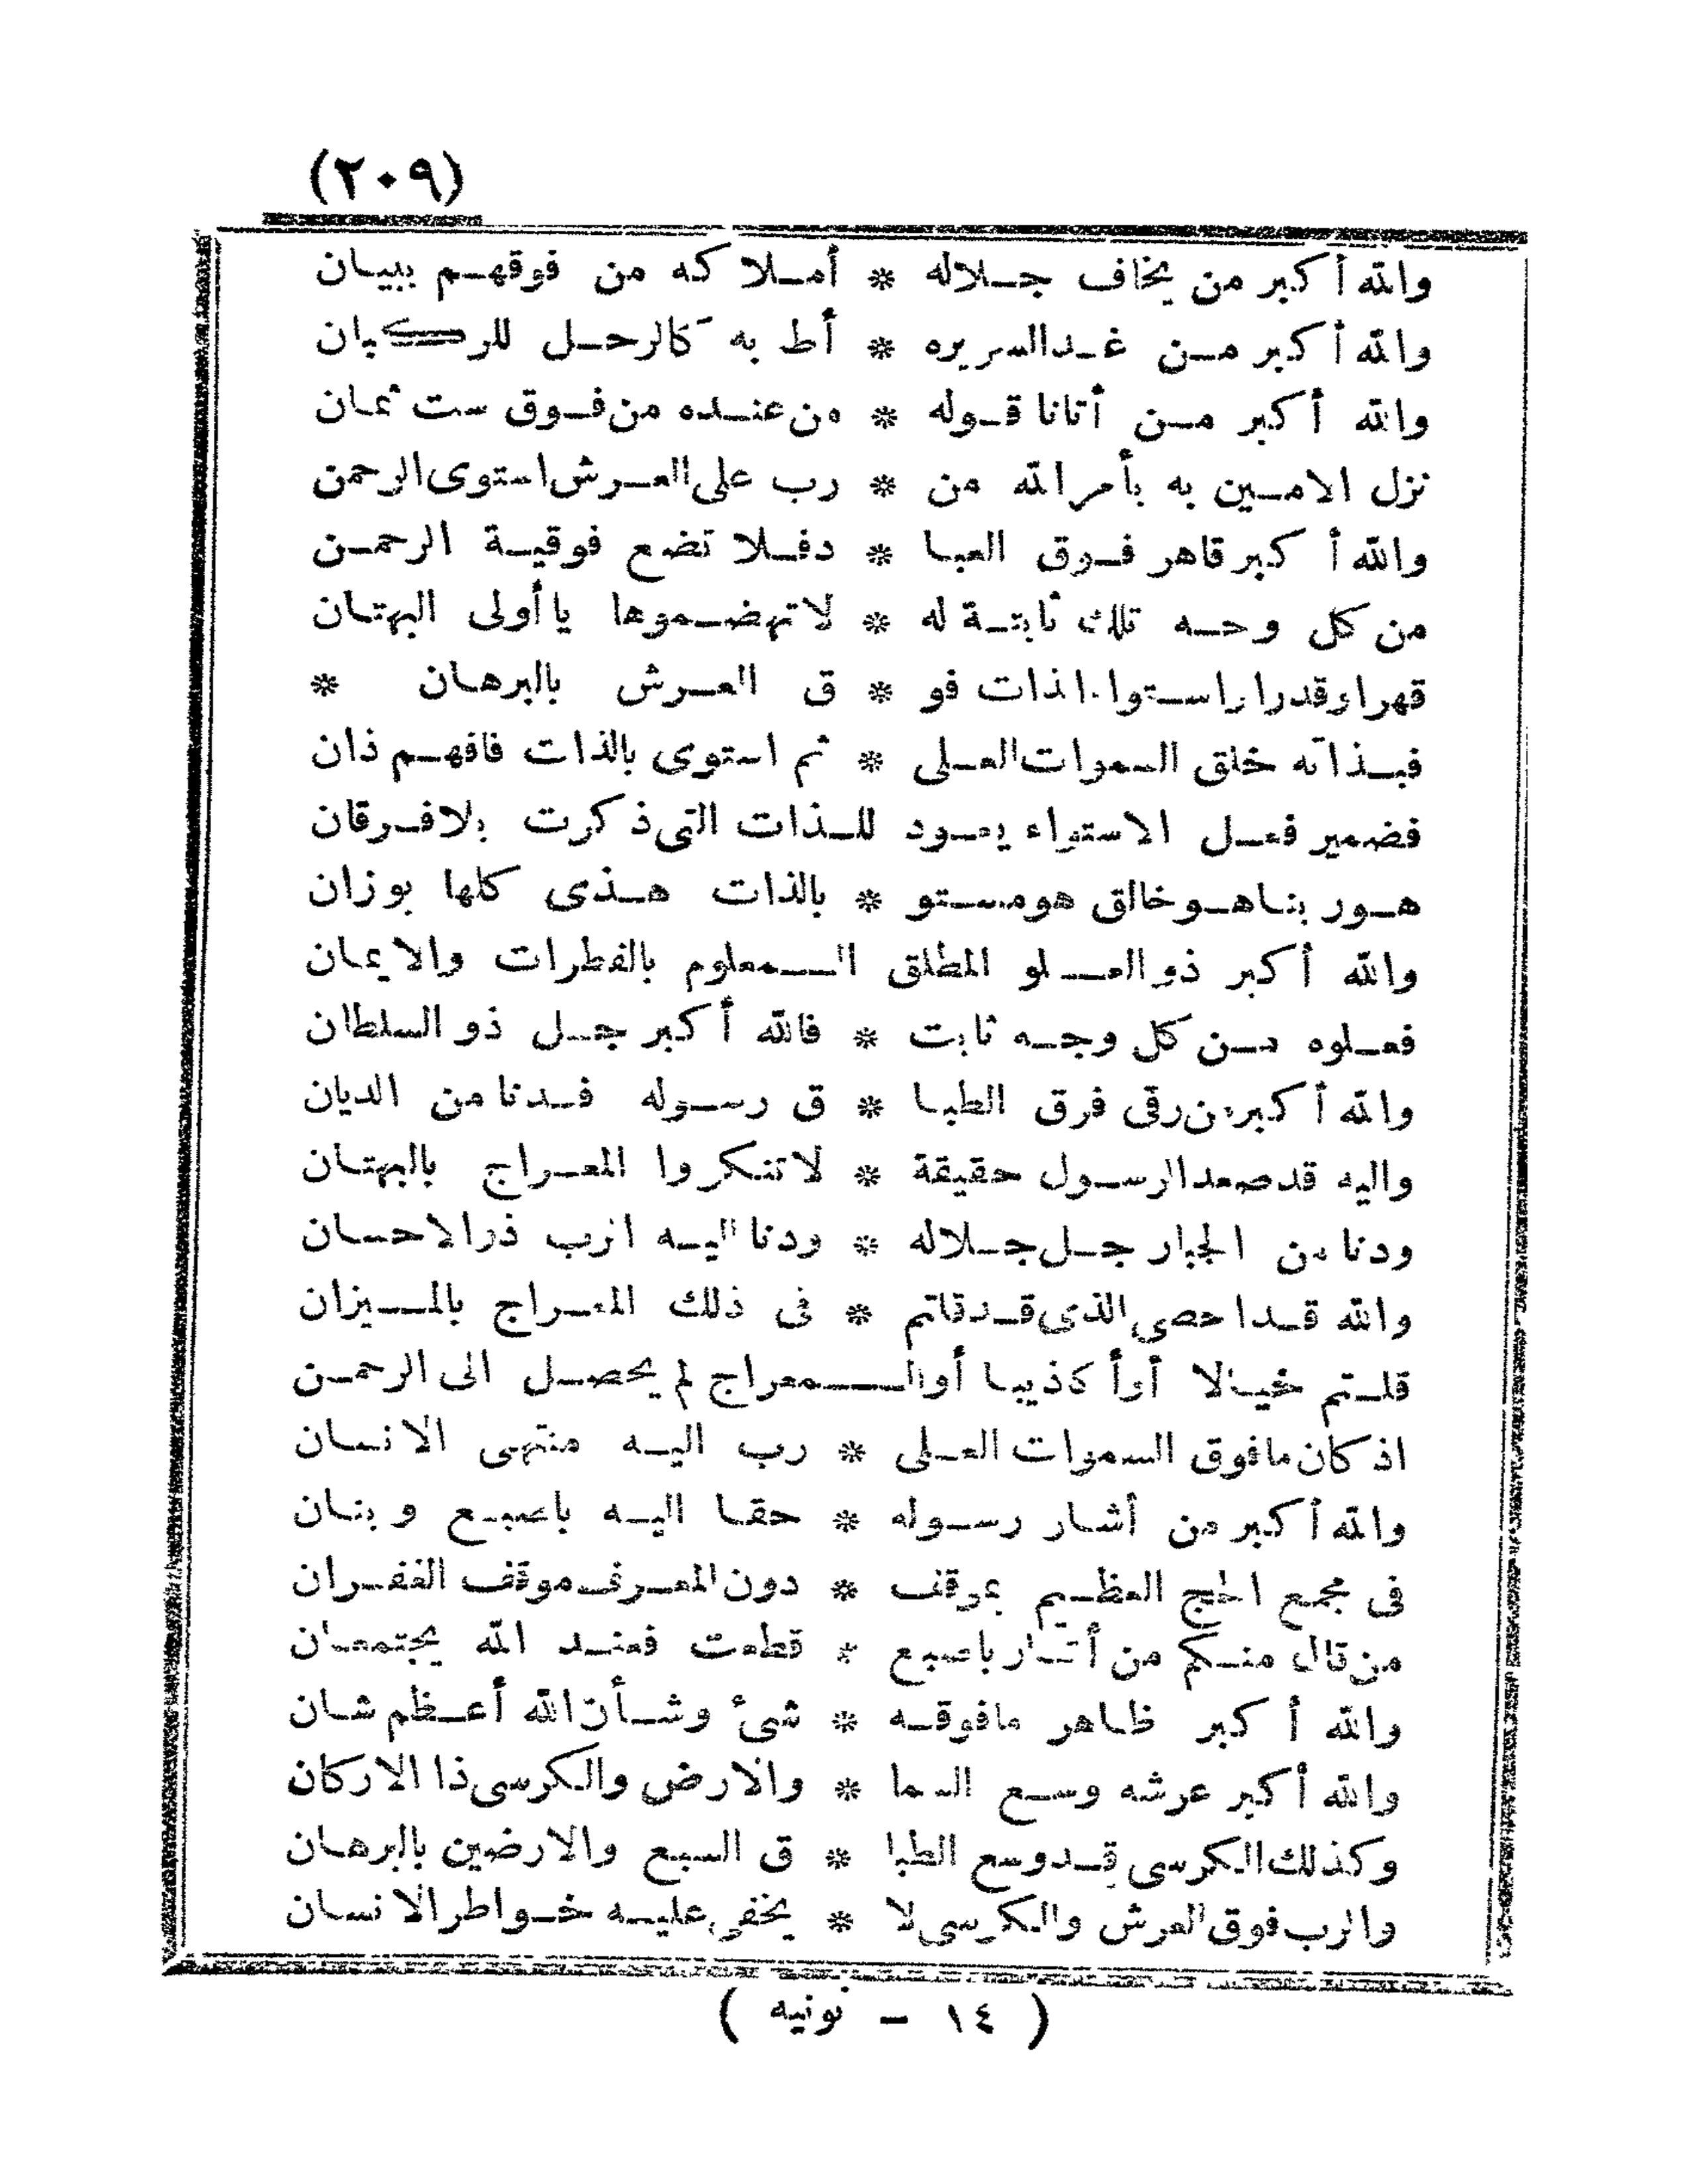 (٢٠٩)
والله أكبر من يخاف جلاله * أملاكه من فوقهم ببيان
والله أكبر من غدا لسريره * أط به كالرحل للركبان
والله أكبر من أتانا قوله * من عنده من فوق ست ثمان
نزل الامين به بأمر الله من * رب على العرش استوى الرحمن
والله أكبر قاهر فوق العبا * د فلا تضع فوقية الرحمن
من كل وجه تلك ثابتة له * لا تهضموها يا أولى البهتان
قهرا وقدرا واستواء ذات فو * ق العرش بالبرهان *
فبذاته خلق السموات العلى * ثم استوى بالذات فافهم ذان
فضمير فعل الاستواء يعود للذات التى ذكرت بلا فرقان
هو ربنا هو خالق هو مستو * بالذات هذى كلها بوزان
والله أكبر ذو العلو المطلق المعلوم بالفطرات والايمان
فعلوه من كل وجه ثابت * فالله أكبر جل ذو السلطان
والله أكبر من رقى فوق الطبا * ق رسوله فدنا من الديان
واليه قد صعد الرسول حقيقة * لا تنكروا المعراج بالبهتان
ودنا من الجبار جل جلاله * ودنا اليه الرب ذو الاحسان
والله قد احصى الذى قد قلتم * فى ذلك المعراج بالميزان
قلتم خيالا أو أكاذيبا أو المعراج لم يحصل الى الرحمن
اذ كان ما فوق السموات العلى * رب اليه منتهى الانسان
والله أكبر من أشار رسوله * حقا اليه باصبع وبنان
فى مجمع الحج العظيم بموقف * دون المعرف موقف الغفران
من قال منكم من أشار باصبع * قطعت فعند الله يجتمعان
والله أكبر ظاهر ما فوقه * شئ وشأن الله أعظم شان
والله أكبر عرشه وسع السما * والارض والكرسى ذا الاركان
وكذلك الكرسى قد وسع الطبا * ق السبع والارضين بالبرهان
والرب فوق العرش والكرسى لا * يخفى عليه خواطر الانسان
( ١٤ - نونيه )